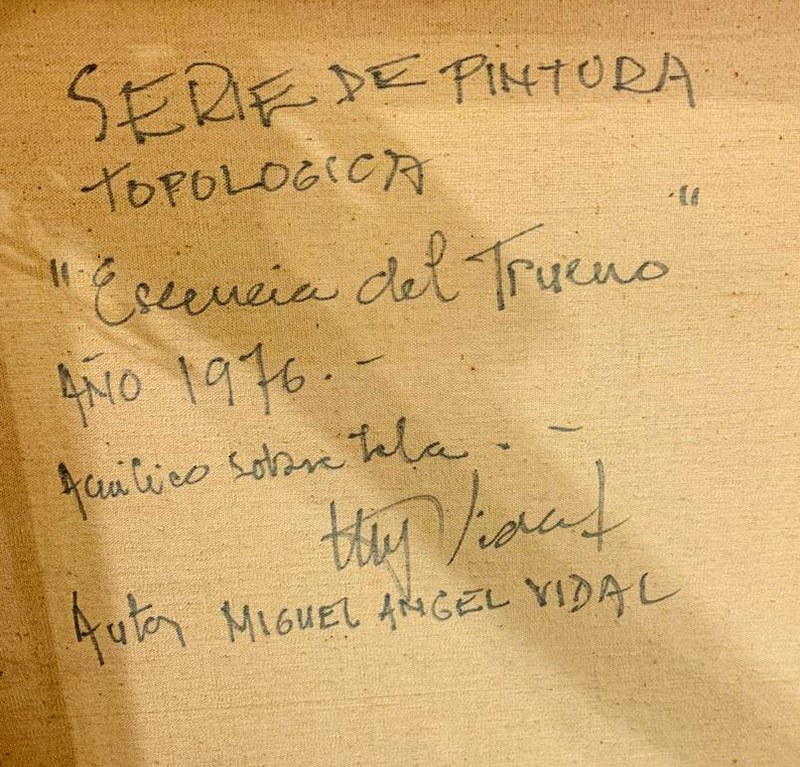 SERIE DE PINTURA
TOPOLOGICA
"Escencia del Trueno"
AÑO 1976.-
Acrilico sobre tela.-
Vidal
Autor MIGUEL ANGEL VIDAL